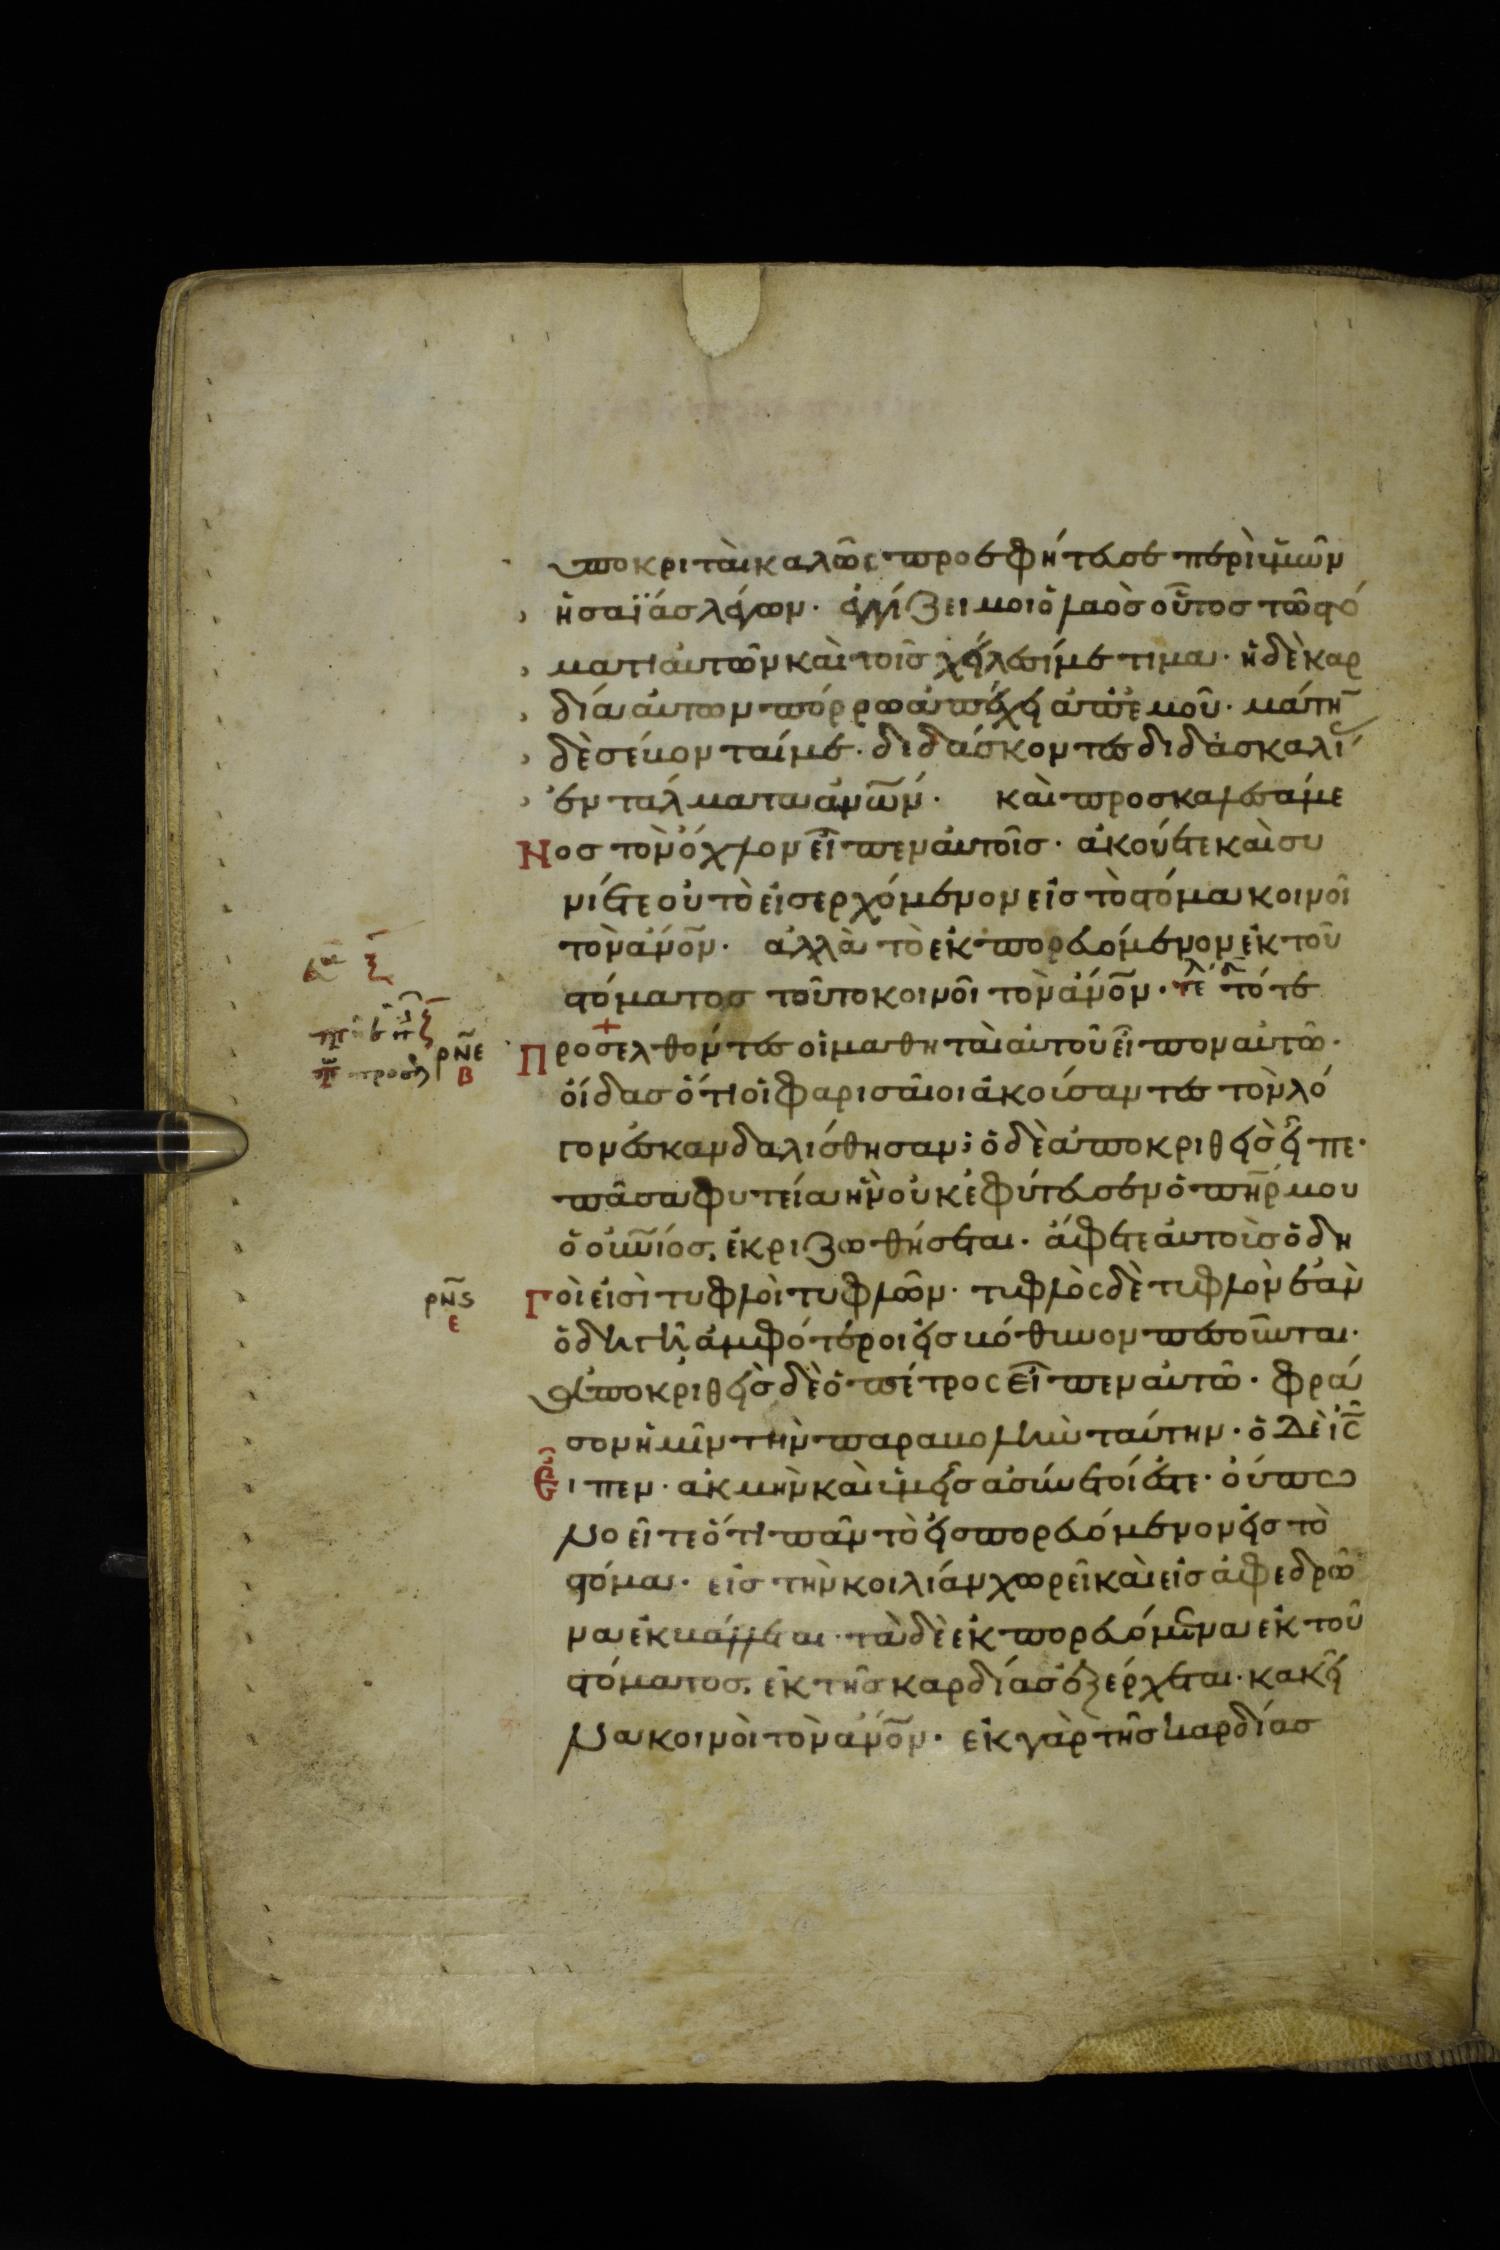 ὑποκριταὶ καλῶς προεφήτευσε περὶ ὑμῶν
ἡσαΐας λέγων· ἐγγίζει μοι ὁ λαὸς οὗτος τῶ στό
ματι αὐτῶν καὶ τοῖς χείλεσί με τιμα· ἡ δὲ καρ
δία αὐτων πόρρω ἀπέχει ἀπ' ἐμοῦ· μάτη̅
δὲ σέβονταί με· διδάσκοντες διδασκαλί
ἐνταλματα ἀν̅ων· καὶ προσκαλεσάμε
Νος τὸν ὄχλον εἶπεν αὐτοῖς· ἀκούετε καὶ συ
νίετε οὐ τὸ εἰσερχόμενον εἰς τὸ στόμα κοινοῖ
τὸν ἄνο̅ν· ἀλλὰ τὸ ἐκπορευόμενον ἐκ τοῦ
στόματος τοῦτο κοινοῖ τὸν ἄνο̅ν· τότε
Προσελθόντες οἱ μαθηταὶ αὐτοῦ εἶπον αὐτῶ·
οἶδας ὅτι οἱ φαρισαῖοι ἀκούσαντες τὸν λό
γον ἐσκανδαλίσθησαν; ὁ δὲ ἀποκριθεὶς εἶπε·
πᾶσα φυτεία ἣν οὐκ ἐφύτευσεν ὁ πη̅ρ μου
ὁ οὐν̅ιος, ἐκριζωθήσεται· ἄφετε αὐτοὺς ὁδη
Γοὶ εἰσὶ τυφλοὶ τυφλῶν· τυφλὸς δὲ τυφλὸν ἐὰν
ὁδηγῆ ἀμφότεροι εἰς βόθυνον πεσοῦνται·
Ἀποκριθεὶς δὲ ὁ πέτρος εἶπεν αὐτῶ· φρά
σον ἡμῖν τὴν παραβολὴν ταύτην· ὁ δὲ ἰς̅
Εἶπεν· ἀκμὴν καὶ ὑμεῖς ἀσύνετοί ἐστε· οὔπω
νοεῖτε ὅτι πᾶν τὸ εἰσπορευόμενον εἰς τὸ
στόμα· εἰς τὴν κοιλίαν χωρεῖ καὶ εἰς ἀφεδρῶ
να ἐκβάλλεται· τὰ δὲ ἐκπορευόμενα ἐκ τοῦ
στόματος, ἐκ τῆς καρδίας ἐξέρχεται· κακεῖ
να κοινοὶ τὸν ἄνο̅ν· ἐκ γὰρ τῆς καρδίας
ρν̅ε
β
ρν̅ς
ε